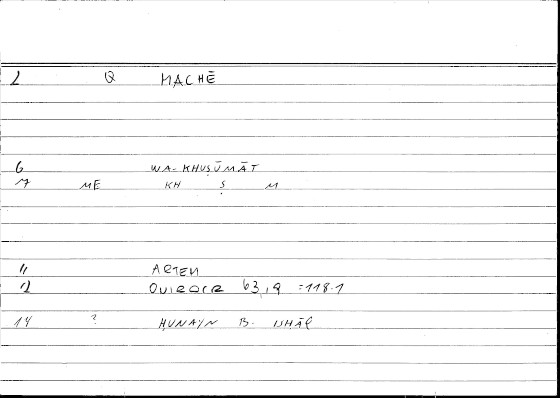 2 Q MACHĒ
6 WA-KHUṢŪMĀT
7 ME KH Ṣ M
11 ARTEM
12 63,9 =118.1
14 ? ḤUNAYN B. ISḤĀQ